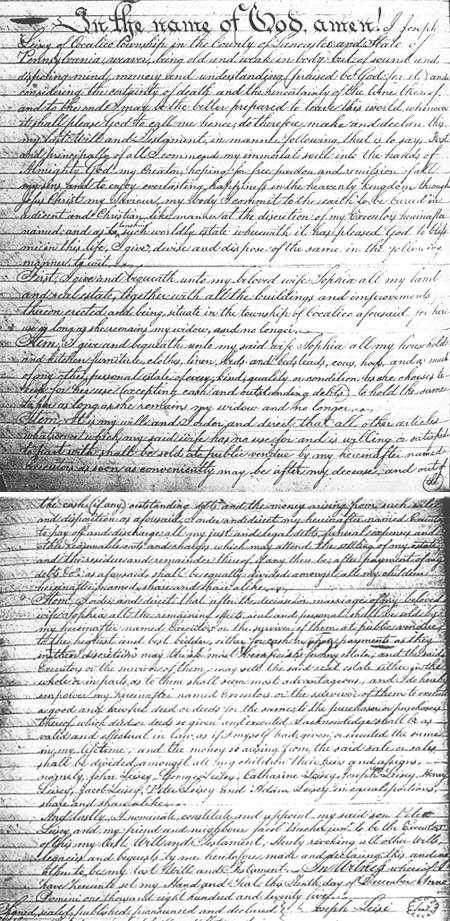 In the name of God, amen! I Joseph
Leisey of Cocalico township in the County of Lancaster and State of
Pennsylvania, weaver, being old and weak in body but of sound and
disposing mind, memory and understanding (praised be God for it) and
considering the certainty of death and the uncertainty of the time thereof,
and to the end I may be the better prepared to leave this world, whenever
it shall please God to call me hence, do therefore make and declare this
my last Will and Testament, in manner following, that is to say, First
and principally of all I commend my immortal soul into the hands of
Almighty God my Creator, hoping for free pardon and remission of all
my sins and to enjoy everlasting happiness in the heavenly kingdom through
Jesus Christ my Saviour, my body I commit to the earth to be buried in
a decent and Christian like manner at the discretion of my Executors hereinafter
named, and as to such worldly estate wherewith it has pleased God to bless
me in this life, I give, devise and dispose of the same in the following
manner to wit,
First, I give and bequeath unto my beloved wife Sophia all my land
and real estate, together with all the buildings and improvements
thereon erected and being, situate in the township of Cocalico aforesaid, for her
use as long as she remains my widow, and no longer.
Item, I give and bequeath unto my said wife Sophia all my household
and kitchen furniture, clothes, linen, beds and bedsteads, cows, hogs, and as much
of any other personal estate of every kind, quality or condition as she chooses to
keep for her use (excepting cash and outstanding debts) to hold the same
to her as long as she remains my widow and no longer.
Item, It is my will and I order and direct that all other articles
whatsoever which my said wife has no use for and is willing or satisfied
to part with shall be sold at public vendue by my hereinafter named
Executors as soon as conveniently may be after my decease, and out of
the
the cash (if any) outstanding debts and the money arising from such sale
and disposition as aforesaid, I order and direct my hereinafter named Executors
to pay off and discharge all my just and legal debts, funeral expenses and
other reasonable costs and charges which may attend the settling of my estate,
and the residue and remainder thereof if any there be, after payment of my
debts &c as aforesaid shall be equally divided amongst all my children
hereinafter named, share and share alike.
Item, I order and direct that after the decease or marriage of my beloved
wife Sophia all the remaining effects, real and personal shall be sold by
my hereinafter named Executors or the survivor of them at public vendue
to the highest and best bidder, either for cash or upon payments as they
in their discretion may think most beneficial to my estate; and the said
Executors or the survivor of them, may sell the said real estate either in the
whole or in parts, as to them shall seem most advantageous, and I do hereby
empower my hereinafter named Executors or the survivor of them to execute
a good and lawful deed or deeds for the same to the purchaser or purchasers
thereof, which deed or deeds so given and executed I acknowledge shall be as
valid and effectual in law, as if I myself had given or executed the same
in my lifetime; and the money so arising from the said sale or sales
shall be divided amongst all my children their heirs and assigns,
namely, John Leisey, George Leisey, Catharine Leisey, Joseph Leisey, Henry
Leisey, Jacob Leisey, Peter Leisey and Adam Leisey, in equal portions
share and share alike.
And lastly, I nominate, constitute and appoint my said son Peter
Leisey and my friend and neighbour Jacob Bucher junr. to be the Executors
of this my last Will and Testament, Hereby revoking all other Wills,
legacies and bequests by me heretofore made and declaring this and no
other to be my last Will and Testament. In Witness whereof I
have hereunto set my Hand and Seal this Tenth day of December Anno
Domini one thousand eight hundred and twenty five.
Signed, sealed, published, pronounced and declared Joseph Leise